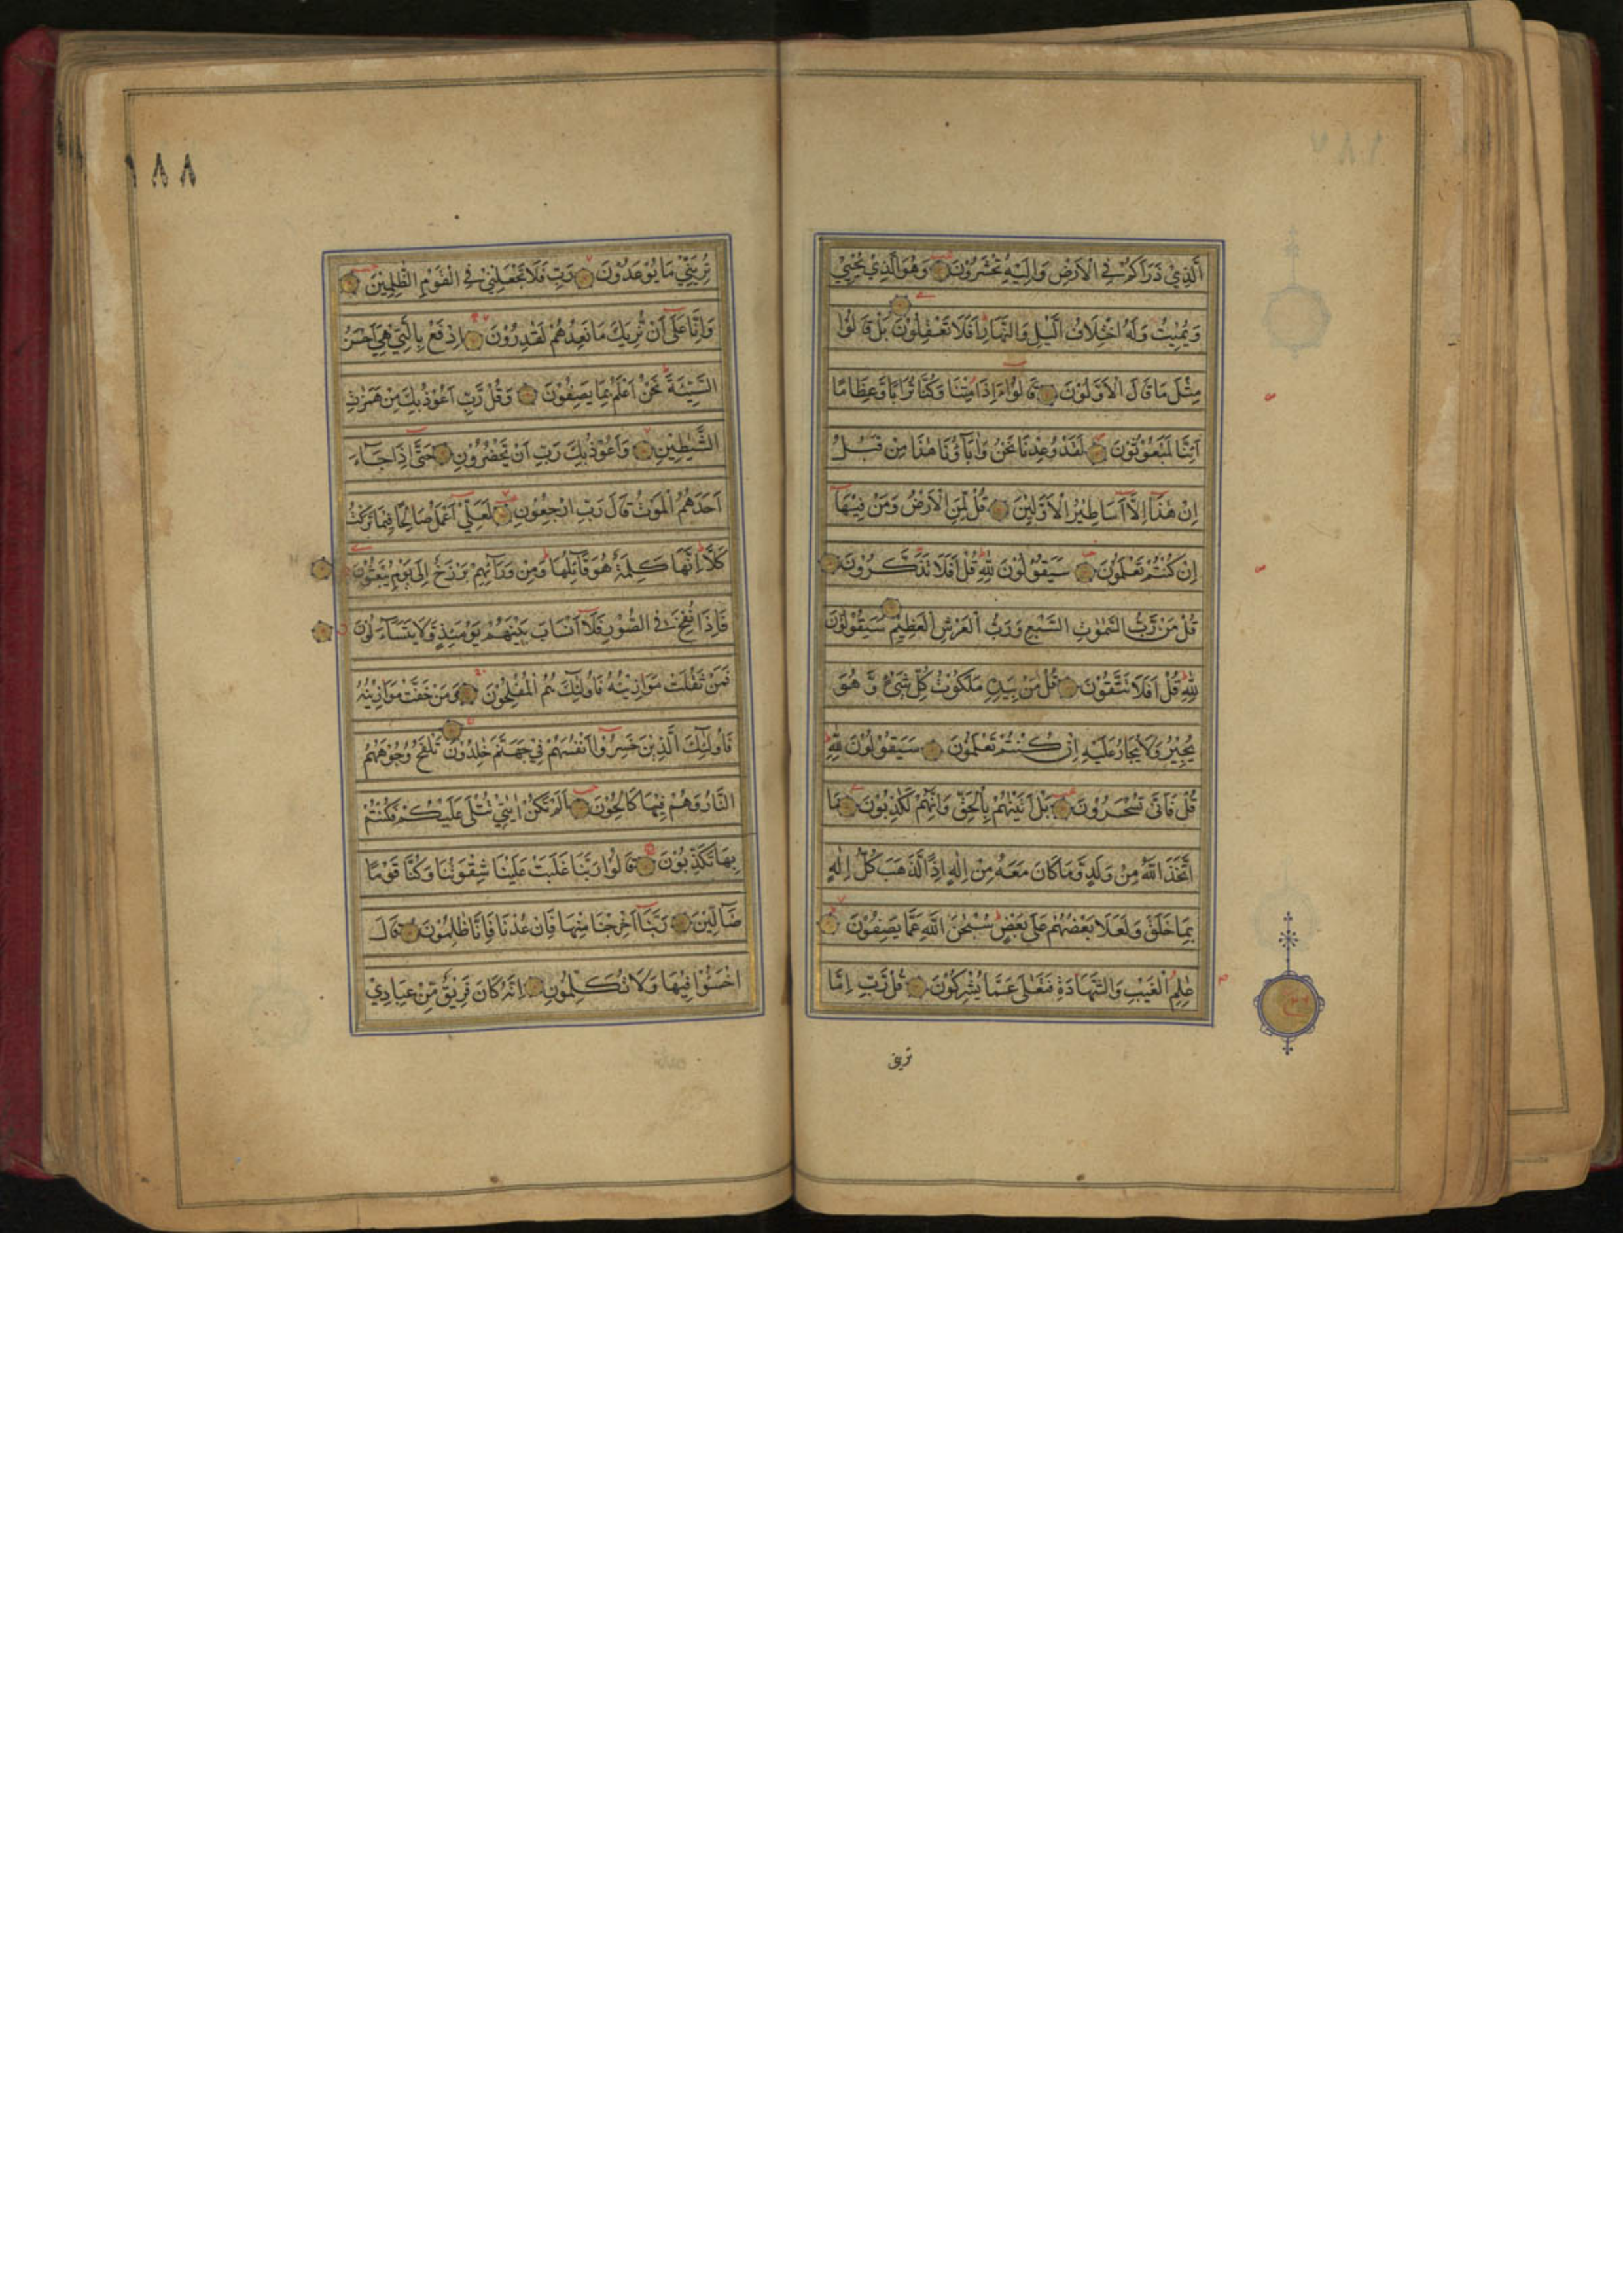 الَّذِي ذَرَأَكُمْ فِي الْاَرْضِ وَاِلَيْهِ تُحْشَرُوْنَ وَهُوَ الَّذِي يُحْيِي
وَيُمِيتُ وَلَهُ اخْتِلَافُ الَّيْلِ وَالنَّهَارِ اَفَلَا تَعْقِلُوْنَ بَلْ قَالُوْا
مِثْلَ مَا قَالَ الْاَوَّلُوْنَ قَالُوْا ءَاِذَا مِتْنَا وَكُنَّا تُرَابًا وَّعِظَامًا
اَئِنَّا لَمَبْعُوْثُوْنَ لَقَدْ وُعِدْنَا نَحْنُ وَاٰبَآؤُنَا هٰذَا مِنْ قَبْلُ
اِنْ هٰذَا اِلَّا اَسَاطِيْرُ الْاَوَّلِيْنَ قُلْ لِّمَنِ الْاَرْضُ وَمَنْ فِيْهَا
اِنْ كُنْتُمْ تَعْلَمُوْنَ سَيَقُوْلُوْنَ لِلّٰهِ قُلْ اَفَلَا تَذَكَّرُوْنَ
قُلْ مَنْ رَّبُّ السَّمٰوٰتِ السَّبْعِ وَرَبُّ الْعَرْشِ الْعَظِيْمِ سَيَقُوْلُوْنَ
لِلّٰهِ قُلْ اَفَلَا تَتَّقُوْنَ قُلْ مَنْ بِيَدِهٖ مَلَكُوْتُ كُلِّ شَيْءٍ وَّهُوَ
يُجِيْرُ وَلَا يُجَارُ عَلَيْهِ اِنْ كُنْتُمْ تَعْلَمُوْنَ سَيَقُوْلُوْنَ لِلّٰهِ
قُلْ فَاَنّٰى تُسْحَرُوْنَ بَلْ اَتَيْنٰهُمْ بِالْحَقِّ وَاِنَّهُمْ لَكٰذِبُوْنَ مَا
اتَّخَذَ اللّٰهُ مِنْ وَلَدٍ وَّمَا كَانَ مَعَهٗ مِنْ اِلٰهٍ اِذًا لَّذَهَبَ كُلُّ اِلٰهٍ
بِمَا خَلَقَ وَلَعَلَا بَعْضُهُمْ عَلٰى بَعْضٍ سُبْحٰنَ اللّٰهِ عَمَّا يَصِفُوْنَ
عٰلِمِ الْغَيْبِ وَالشَّهَادَةِ فَتَعٰلٰى عَمَّا يُشْرِكُوْنَ قُلْ رَّبِّ اِمَّا
تريني
١٨٨
تُرِيَنِّيْ مَا يُوْعَدُوْنَ رَبِّ فَلَا تَجْعَلْنِيْ فِي الْقَوْمِ الظّٰلِمِيْنَ
وَاِنَّا عَلٰى اَنْ نُّرِيَكَ مَا نَعِدُهُمْ لَقٰدِرُوْنَ اِدْفَعْ بِالَّتِيْ هِيَ اَحْسَنُ
السَّيِّئَةَ نَحْنُ اَعْلَمُ بِمَا يَصِفُوْنَ وَقُلْ رَّبِّ اَعُوْذُ بِكَ مِنْ هَمَزٰتِ
الشَّيٰطِيْنِ وَاَعُوْذُ بِكَ رَبِّ اَنْ يَّحْضُرُوْنِ حَتّٰى اِذَا جَآءَ
اَحَدَهُمُ الْمَوْتُ قَالَ رَبِّ ارْجِعُوْنِ لَعَلِّيْ اَعْمَلُ صَالِحًا فِيْمَا تَرَكْتُ
كَلَّا اِنَّهَا كَلِمَةٌ هُوَ قَآئِلُهَا وَمِنْ وَرَآئِهِمْ بَرْزَخٌ اِلٰى يَوْمِ يُبْعَثُوْنَ
فَاِذَا نُفِخَ فِي الصُّوْرِ فَلَا اَنْسَابَ بَيْنَهُمْ يَوْمَئِذٍ وَّلَا يَتَسَآءَلُوْنَ
فَمَنْ ثَقُلَتْ مَوَازِيْنُهٗ فَاُولٰئِكَ هُمُ الْمُفْلِحُوْنَ وَمَنْ خَفَّتْ مَوَازِيْنُهٗ
فَاُولٰئِكَ الَّذِيْنَ خَسِرُوْا اَنْفُسَهُمْ فِيْ جَهَنَّمَ خٰلِدُوْنَ تَلْفَحُ وُجُوْهَهُمُ
النَّارُ وَهُمْ فِيْهَا كَالِحُوْنَ اَلَمْ تَكُنْ اٰيٰتِيْ تُتْلٰى عَلَيْكُمْ فَكُنْتُمْ
بِهَا تُكَذِّبُوْنَ قَالُوْا رَبَّنَا غَلَبَتْ عَلَيْنَا شِقْوَتُنَا وَكُنَّا قَوْمًا
ضَآلِّيْنَ رَبَّنَا اَخْرِجْنَا مِنْهَا فَاِنْ عُدْنَا فَاِنَّا ظٰلِمُوْنَ قَالَ
اخْسَئُوْا فِيْهَا وَلَا تُكَلِّمُوْنِ اِنَّهٗ كَانَ فَرِيْقٌ مِّنْ عِبَادِيْ